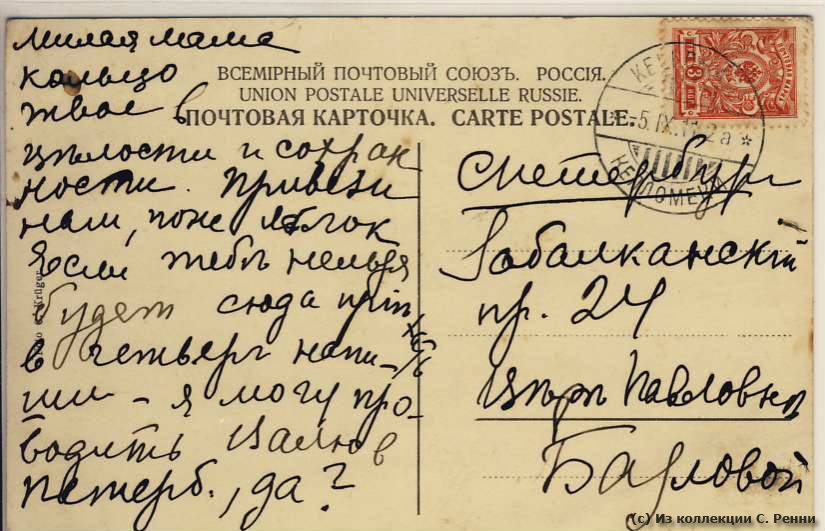 милая мама
кольцо
твое в
цѣлости и сохран
ности. Привези
нам, яблок
Если тебѣ нельзя
будет сюда
в четверг напи-
ши - я могу про-
водить в
Петерб., да?
ВСЕМІРНЫЙ ПОЧТОВЫЙ СОЮЗЪ. РОССІЯ.
UNION POSTALE UNIVERSELLE RUSSIE.
ПОЧТОВАЯ КАРТОЧКА. CARTE POSTALE.
С Петербург
Забалканскій
пр. 24
Павловнѣ
5.IX.11
(c) Из коллекции С. Ренни